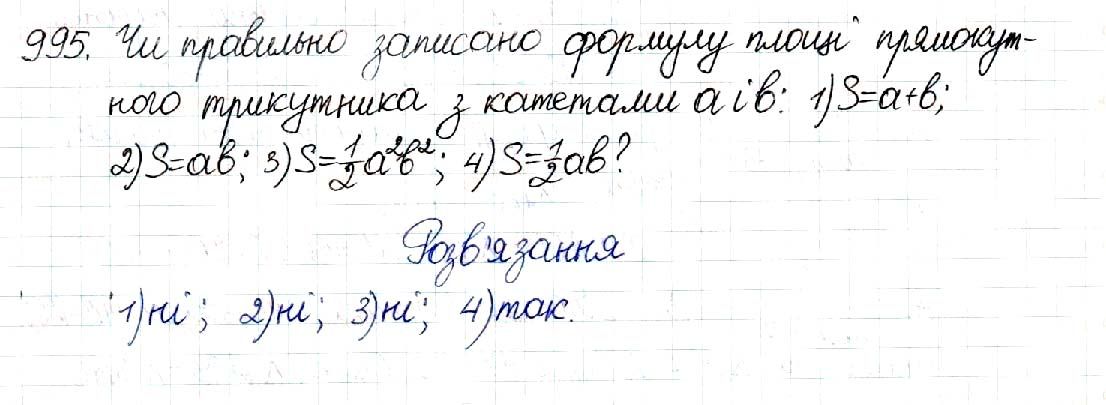 995. Чи правильно записано формулу площі прямокут-
ного трикутника з катетами a і b: 1) S=a+b;
2) S=ab; 3) S=1/2a²b²; 4) S=1/2ab?
Розв'язання
1) ні; 2) ні; 3) ні; 4) так.